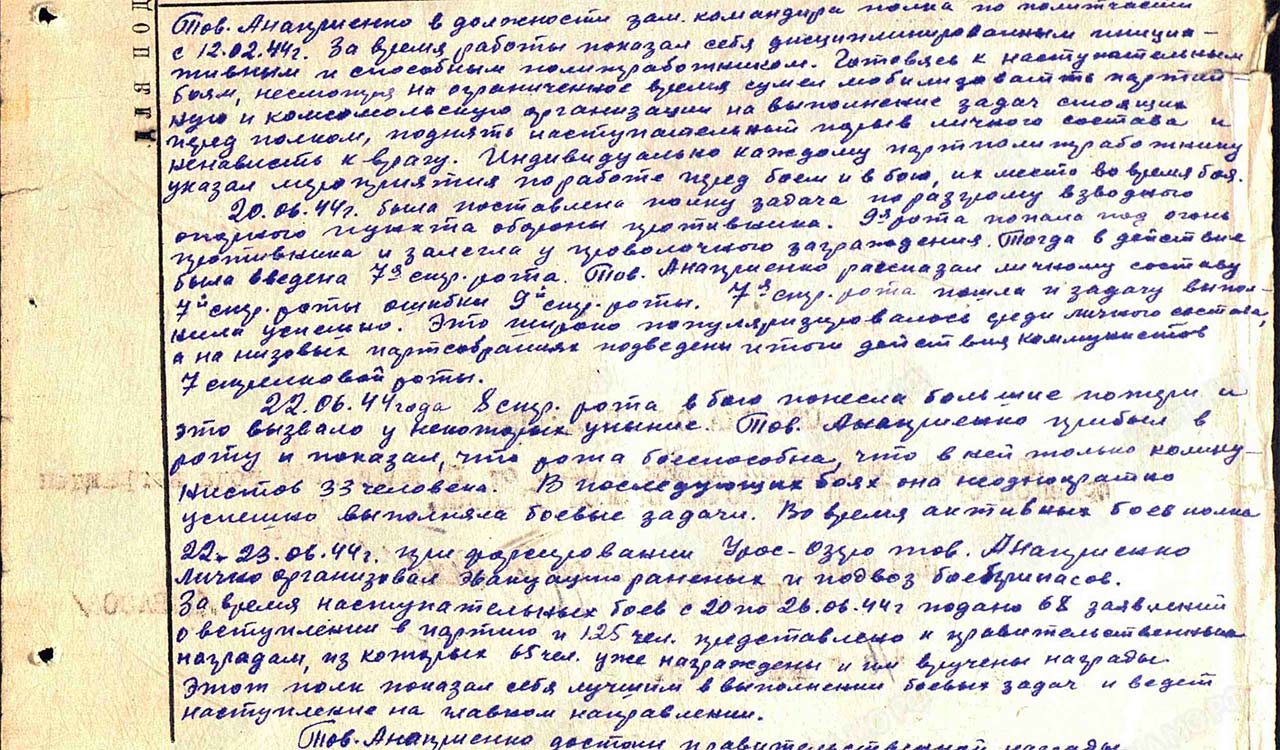 Тов. Анацриенко в должности зам. командира полка по политчасти
с 12.02.44г. За время работы показал себя дисциплинированным инициа-
тивным и способным политработником. Готовясь к наступательным
боям, несмотря на ограниченное время сумел мобилизовать партий
ную и комсомольскую организации на выполнение задач стоящих
перед полком, поднять наступательный порыв личного состава и
ненависть к врагу. Индивидуально каждому партполитработнику
указал мероприятия по работе перед боем и в бою, их место во время боя.
20.06.44г. была поставлена полку задача по разгрому взводного
опорного пункта обороны противника. 9я рота попала под огонь
противника и залегла у проволочного заграждения. Тогда в действие
была введена 7я стр. рота. Тов. Анацриенко рассказал личному составу
7й стр. роты ошибки 9й стр. роты. 7я стр. рота пошла и задачу выпол-
нила успешно. Это широко популяризировалось среди личного состава,
а на низовых партсобраниях подведены итоги действия коммунистов
7 стрелковой роты.
22.06.44 года 8 стр. рота в бою понесла большие потери и
это вызвало у некоторых уныние. Тов. Анацриенко прибыл в
роту и показал, что рота боеспособна, что в ней только комму-
нистов 33 человека. В последующих боях она неоднократно
успешно выполняла боевые задачи. Во время активных боев полка
22-23.06.44г. при форсировании Урос-Озеро тов. Анацриенко
лично организовал эвакуацию раненых и подвоз боеприпасов.
За время наступательных боев с 20 по 26.06.44г подано 68 заявлений
о вступлении в партию и 125 чел. представлено к правительственным
наградам, из которых 65 чел. уже награждены и им вручены награды.
Этот полк показал себя лучшим в выполнении боевых задач и ведет
наступление на главном направлении.
Тов. Анацриенко достоин правительственной награды